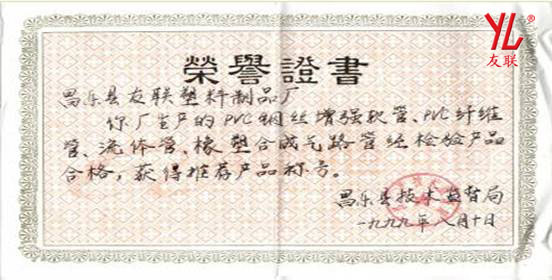 YL®
友联
榮譽證書
昌乐县友联塑料制品厂
你厂生产的PVC钢丝增强软管、PVC纤维
管、流体管、橡塑合成气路管经检验产品
合格,获得推荐产品称号。
昌乐县技术监督局
一九九九年八月十日